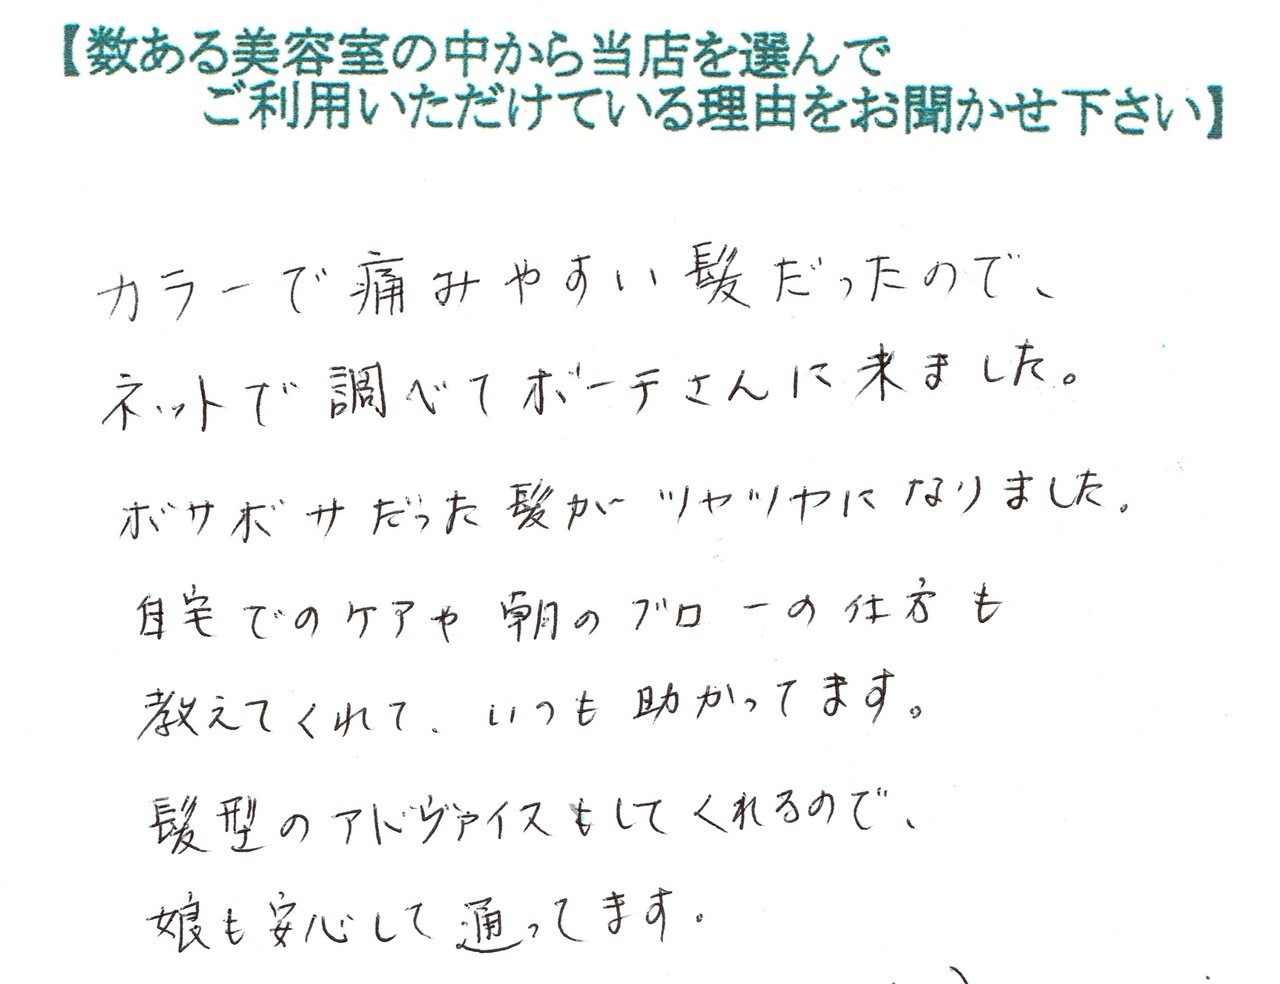 【数ある美容室の中から当店を選んで
ご利用いただけている理由をお聞かせ下さい】
カラーで痛みやすい髪だったので、
ネットで調べてボーテさんに来ました。
ボサボサだった髪がツヤツヤになりました。
自宅でのケアや朝のブローの仕方も
教えてくれて、いつも助かってます。
髪型のアドヴァイスもしてくれるので、
娘も安心して通ってます。